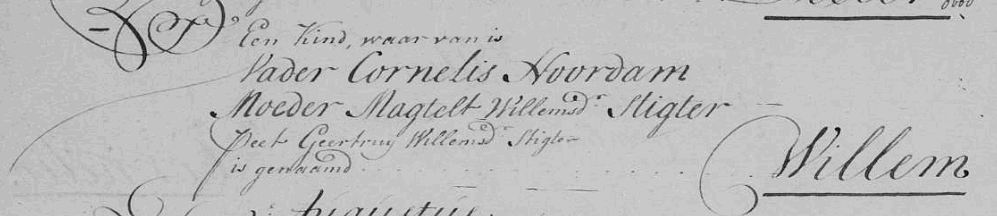 Een Kind, waar van is
Vader Cornelis Noordam
Moeder Magtelt Willemsdr Stigter
Peet Geertruij Willemsdr Stigter
is genaamd . . . . . . . . . . Willem
Augustus.